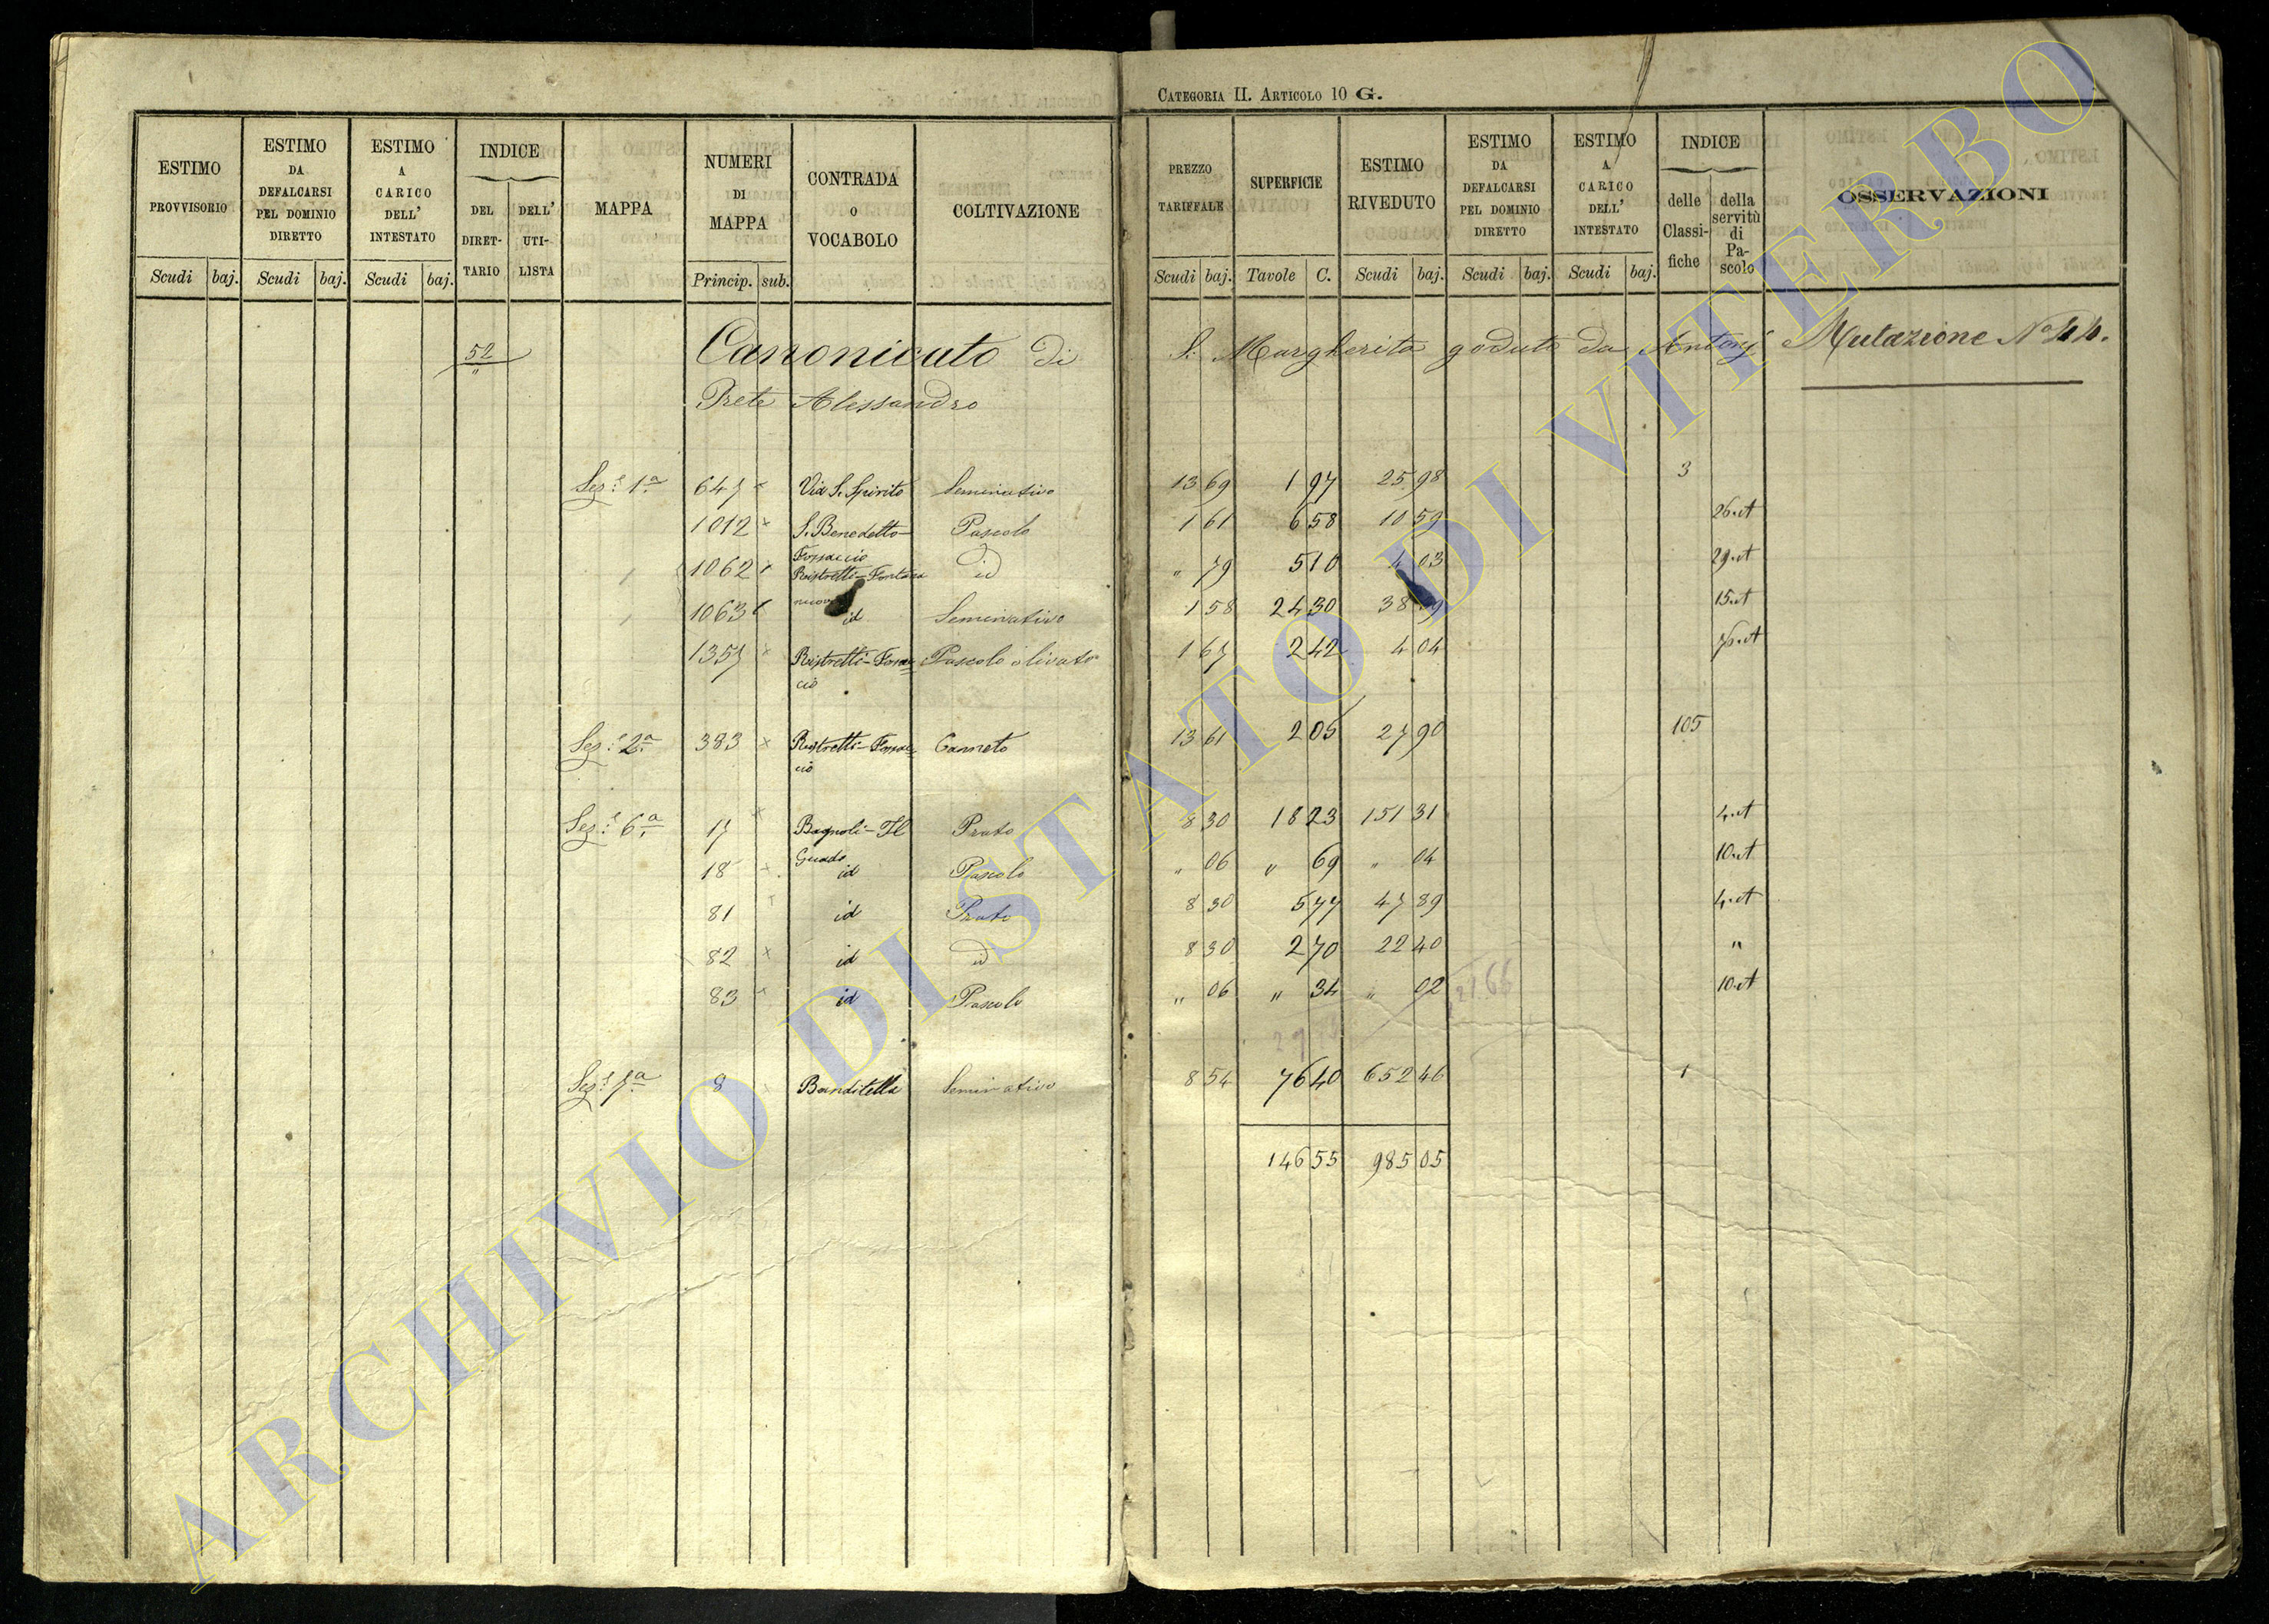 CATEGORIA II. ARTICOLO 10 G.
ESTIMO PROVVISORIO | ESTIMO DA DEFALCARSI PEL DOMINIO DIRETTO | ESTIMO A CARICO DELL' INTESTATO | INDICE | MAPPA | NUMERI DI MAPPA | CONTRADA O VOCABOLO | COLTIVAZIONE | PREZZO TARIFFALE | SUPERFICIE | ESTIMO RIVEDUTO | ESTIMO DA DEFALCARSI PEL DOMINIO DIRETTO | ESTIMO A CARICO DELL' INTESTATO | INDICE | OSSERVAZIONI
DEL DIRETTARIO | DELL' UTILISTA | delle Classifiche | della servitù di Pascolo
Scudi | baj. | Scudi | baj. | Scudi | baj. | Princip. | sub. | Scudi | baj. | Tavole | C. | Scudi | baj. | Scudi | baj. | Scudi | baj.
52 Canonicato di S. Margherita goduto da Antonj Mutazione Nº 44.
"
Prete Alessandro
Sez.e 1.a 647 x Via S. Spirito Seminativo 13 69 1 97 25 98 3
1012 x S. Benedetto Pascolo 1 61 6 58 10 59 26.A
Fossaccio
1062 x Ristretti-Fontana id " 79 5 10 4 03 29.A
nuova
1063 id Seminativo 1 58 24 30 38 15.A
1357 x Ristretti-Fossac= Pascolo olivato 1 67 2 42 4 04 76.A
cio
Sez.e 2.a 383 x Ristretti-Fossac= Canneto 13 61 2 05 27 90 105
cio
Sez.e 6.a 17 x Bagnoli-Il Prato 8 30 18 23 151 31 4.A
Guado
18 x id Pascolo " 06 " 69 " 04 10.A
81 id Prato 8 30 5 77 47 89 4.A
82 x id id 8 30 2 70 22 40 "
83 id Pascolo " 06 " 34 " 02 10.A
Sez.e 7.a 8 Banditella Seminativo 8 54 76 40 652 46 1
146 55 985 05
ARCHIVIO DI STATO DI VITERBO